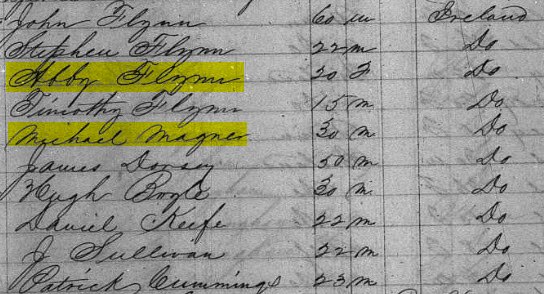 John Flynn 60 m Ireland
Stephen Flynn 22 m Do
Abby Flynn 20 F Do
Timothy Flynn 15 m Do
Michael Magner 30 m Do
James Dorsey 50 m Do
Hugh Boyle 30 m Do
Daniel Keefe 22 m Do
J Sullivan 22 m Do
Patrick Cummings 23 m Do